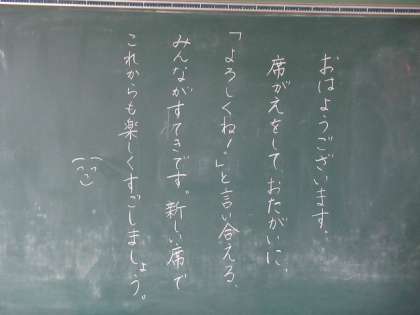 おはようございます。
席がえをして、おたがいに、
「よろしくね！」と言い合える、
みんながすてきです。新しい席で
これからも楽しくすごしましょう。